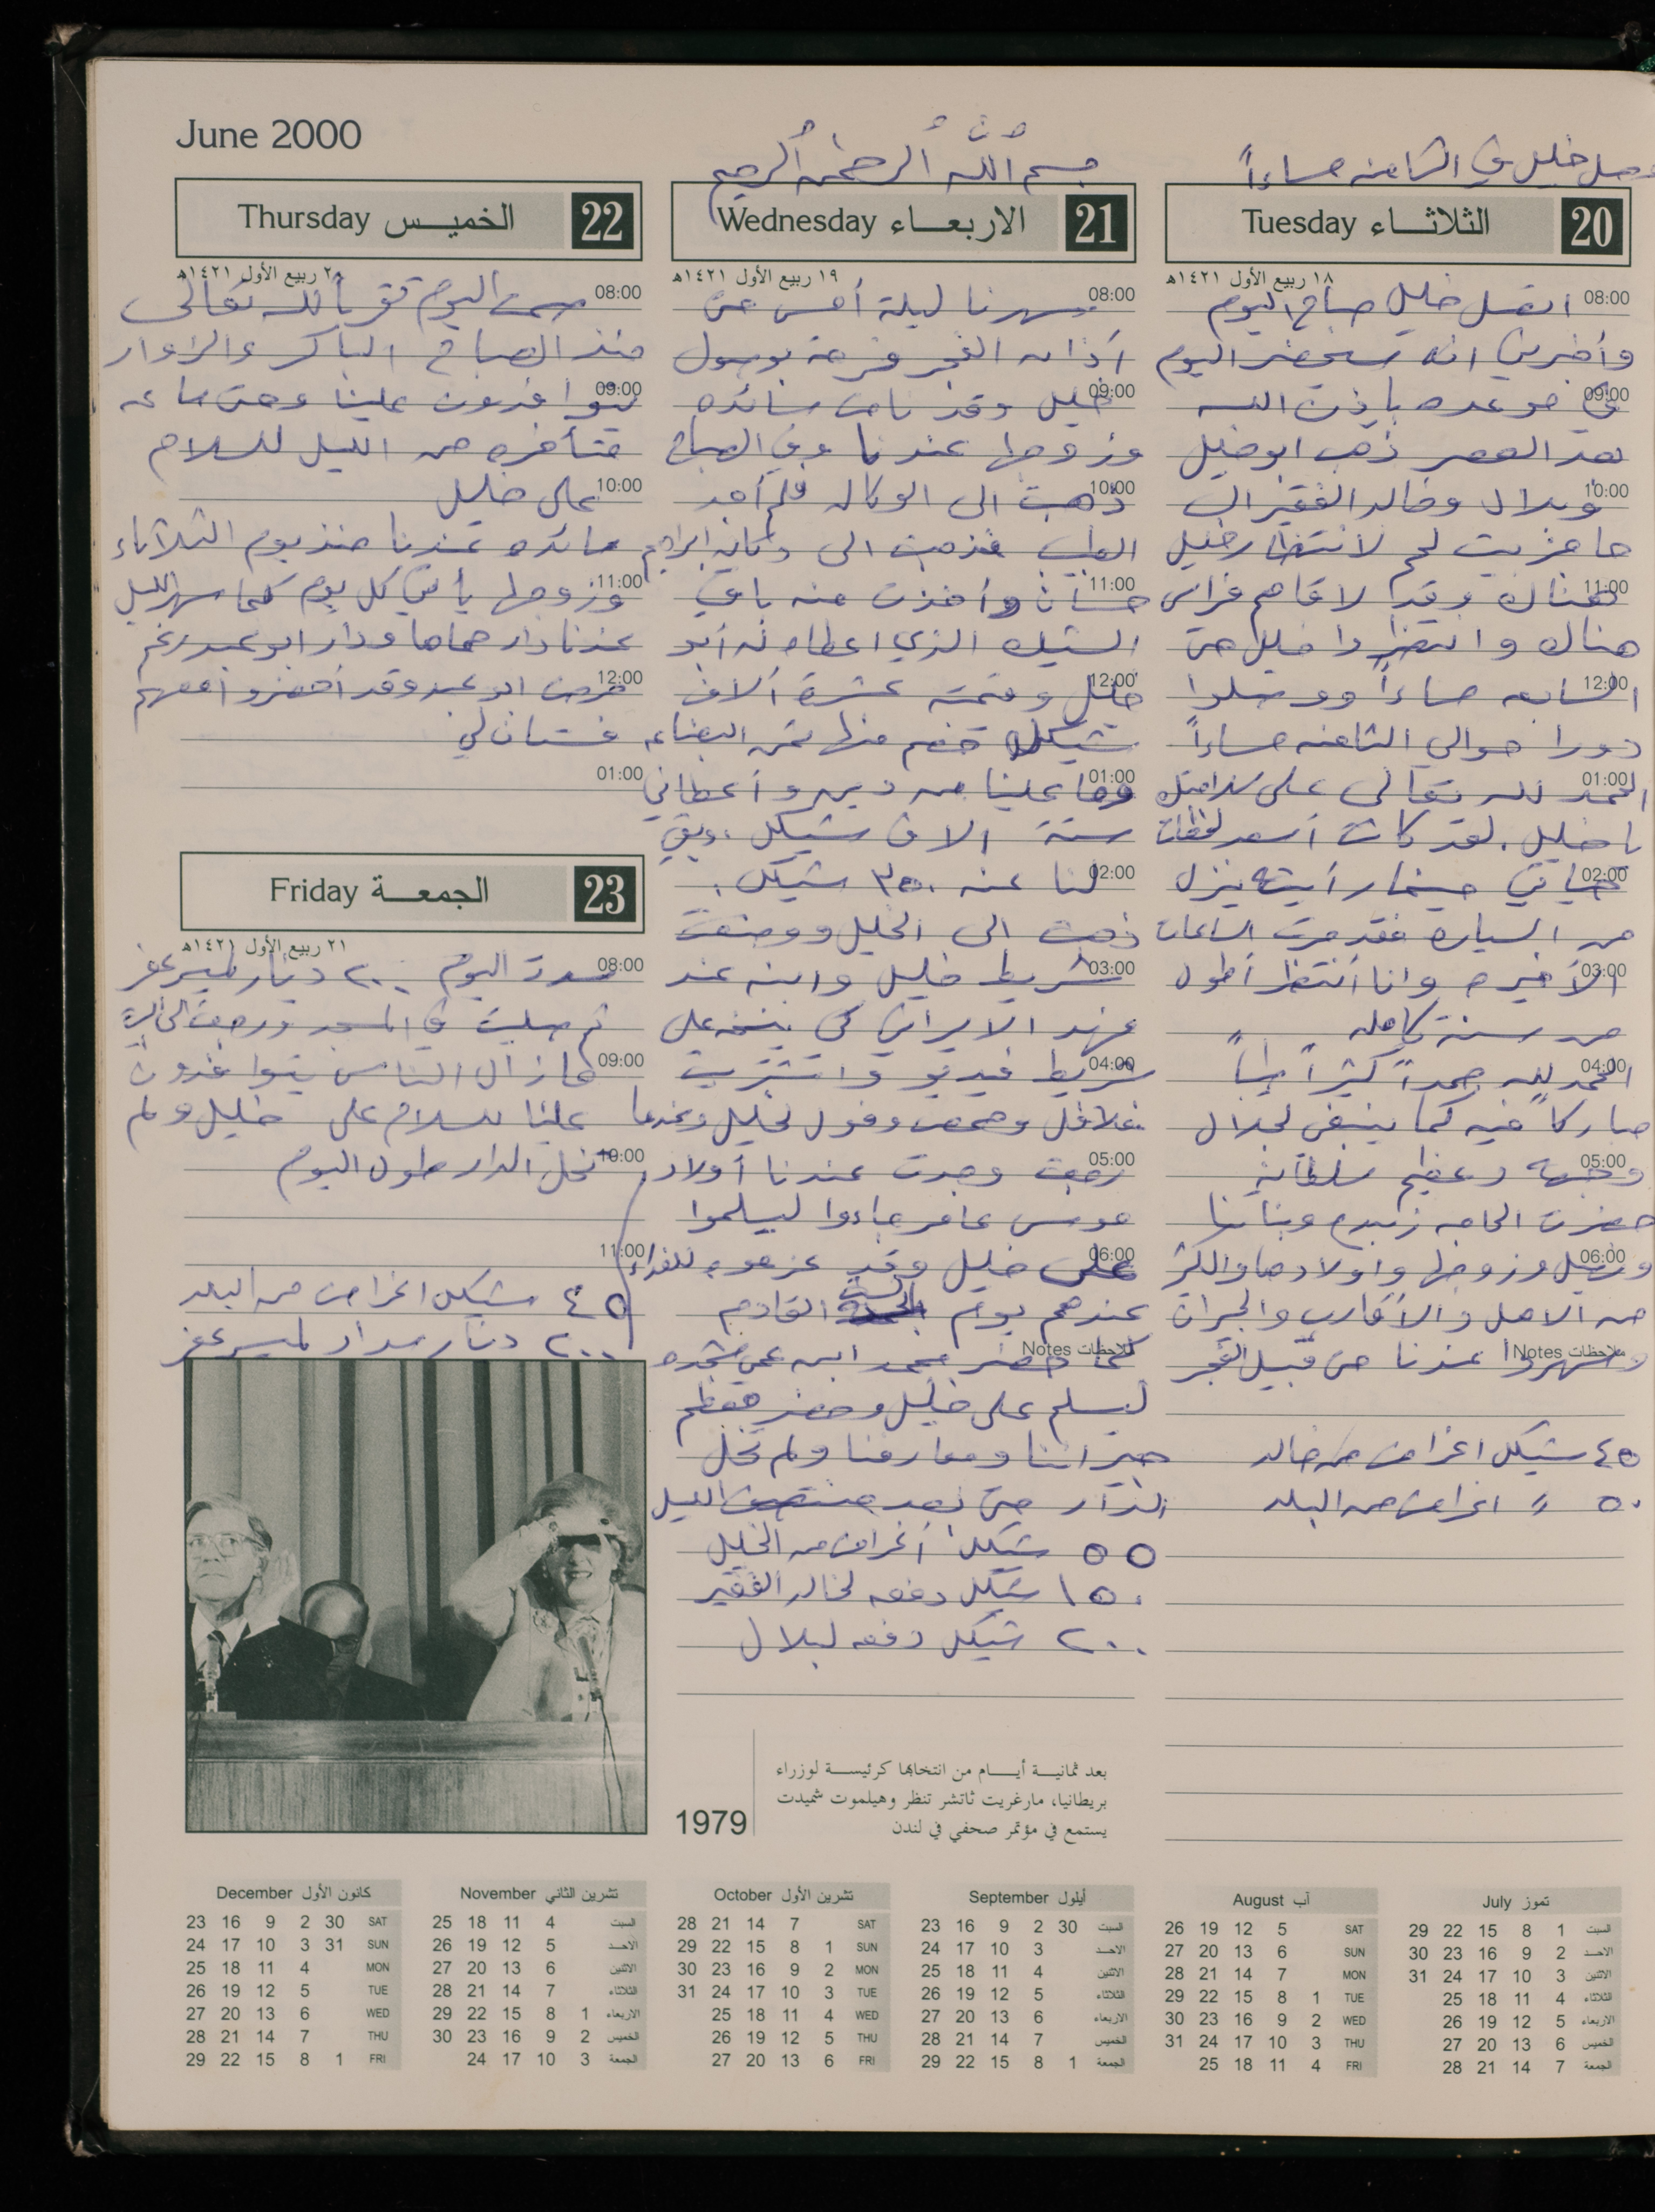 June 2000
بسم الله الرحمن الرحيم
وصل خليل في الثامنه مساءاً
20 الثلاثاء Tuesday
١٨ ربيع الأول ١٤٢١هـ
08:00 اتصل خليل صباح اليوم
وأخبرني انه سيحضر اليوم
09:00 في موعده باذن الله
بعد العصر ذهب ابو خليل
10:00 وبلال وخالد الفقير الى
حاجز بيت لحم لانتظار خليل
11:00 هناك وقد لاقاهم فراس
هناك وانتظروا خليل حتى
12:00 السابعه مساءاً ووصلوا
دورا حوالي الثامنه مساءاً
01:00 الحمد لله تعالى على سلامتك
يا خليل. لقد كانت أسعد لحظات
02:00 حياتي حينما رأيته ينزل
من السياره فقد مرت الساعات
03:00 الأخيره وانا أنتظر أطول
من سنة كامله
04:00 الحمد لله حمداً كثيراً طيباً
مباركاً فيه كما ينبغي لجلال
05:00 وجهه وعظيم سلطانه
حضرت الحاجه زبيده وبناتنا
06:00 وزوجها واولادها والكثير
من الاهل والأقارب والجيران
ملاحظات Notes وسهروا عندنا حتى قبيل الفجر
٤٥ شيكل اغراض من خالد
٥٠ " اغراض من البلد
21 الاربعاء Wednesday
١٩ ربيع الأول ١٤٢١هـ
08:00 سهرنا ليلة أمس حتى
أذان الفجر فرحة بوصول
09:00 خليل وقد نامت سائده
وزوجها عندنا وفي الصباح
10:00 ذهبت الى الوكاله فلم أجد
الطبيب فذهبت الى دكان ابراهيم
11:00 حسان وأخذت منه باقي
الشيك الذي اعطاه له أبو
12:00 خليل وقيمته عشرة آلاف
شيكل خصم منها ثمن البضاعه
01:00 وما علينا من دين وأعطاني
ستة الاف شيكل. وبقي
02:00 لنا عنه ٣٥٠ شيكل.
ذهبت الى الخليل ووضعت
03:00 شريط خليل وابنه عند
فهد الايراني كي ينسخه على
04:00 شريط فيديو واشتريت
فلافل وحمص وفول لخليل وعندما
05:00 رجعت وجدت عندنا أولاد
موسى عامر جاءوا ليسلموا
06:00 على خليل وقد عزموه للغداء
عندهم يوم السبت القادم
ملاحظات Notes كما حضر محمد ابن عمي
ليسلم على خليل وحضر معظم
جيراننا ومعارفنا ولم تخل
الدار حتى بعد منتصف الليل
٥٥ شيكل أغراض من الخليل
١٥٠ شيكل دفعه لخالد الفقير
٢٠٠ شيكل دفعه لبلال
22 الخميس Thursday
٢٠ ربيع الأول ١٤٢١هـ
08:00 صمت اليوم تقرباً لله تعالى
منذ الصباح الباكر والزوار
09:00 يتوافدون علينا وحتى ساعه
متأخره من الليل للسلام
10:00 على خليل
سائده عندنا منذ يوم الثلاثاء
11:00 وزوجها يأتي كل يوم كما سهر الليل
عندنا دار حماها ودار ابو عبد رغم
12:00 مرض ابو عبد وقد أحضروا معهم
فستان لي
01:00
23 الجمعة Friday
٢١ ربيع الأول ١٤٢١هـ
08:00 سددت اليوم ٢٠٠ دينار لميسر عفر
ثم صليت في المسجد ورجعت الى البيت
09:00 ما زال الناس يتوافدون
علينا للسلام على خليل ولم
10:00 تخل الدار طول اليوم
11:00
٤٥ شيكل اغراض من البلد
٢٠٠ دينار سداد لميسر عفر
1979
بعد ثمانية أيام من انتخابها كرئيسة لوزراء
بريطانيا، مارغريت ثاتشر تنظر وهيلموت شميدت
يستمع في مؤتمر صحفي في لندن
تموز July
السبت 1 8 15 22 29
الاحد 2 9 16 23 30
الاثنين 3 10 17 24 31
الثلاثاء 4 11 18 25
الاربعاء 5 12 19 26
الخميس 6 13 20 27
الجمعة 7 14 21 28
آب August
SAT 5 12 19 26
SUN 6 13 20 27
MON 7 14 21 28
TUE 1 8 15 22 29
WED 2 9 16 23 30
THU 3 10 17 24 31
FRI 4 11 18 25
أيلول September
السبت 30 2 9 16 23
الاحد 3 10 17 24
الاثنين 4 11 18 25
الثلاثاء 5 12 19 26
الاربعاء 6 13 20 27
الخميس 7 14 21 28
الجمعة 1 8 15 22 29
تشرين الأول October
SAT 7 14 21 28
SUN 1 8 15 22 29
MON 2 9 16 23 30
TUE 3 10 17 24 31
WED 4 11 18 25
THU 5 12 19 26
FRI 6 13 20 27
تشرين الثاني November
السبت 4 11 18 25
الاحد 5 12 19 26
الاثنين 6 13 20 27
الثلاثاء 7 14 21 28
الاربعاء 1 8 15 22 29
الخميس 2 9 16 23 30
الجمعة 3 10 17 24
كانون الأول December
SAT 30 2 9 16 23
SUN 31 3 10 17 24
MON 4 11 18 25
TUE 5 12 19 26
WED 6 13 20 27
THU 7 14 21 28
FRI 1 8 15 22 29